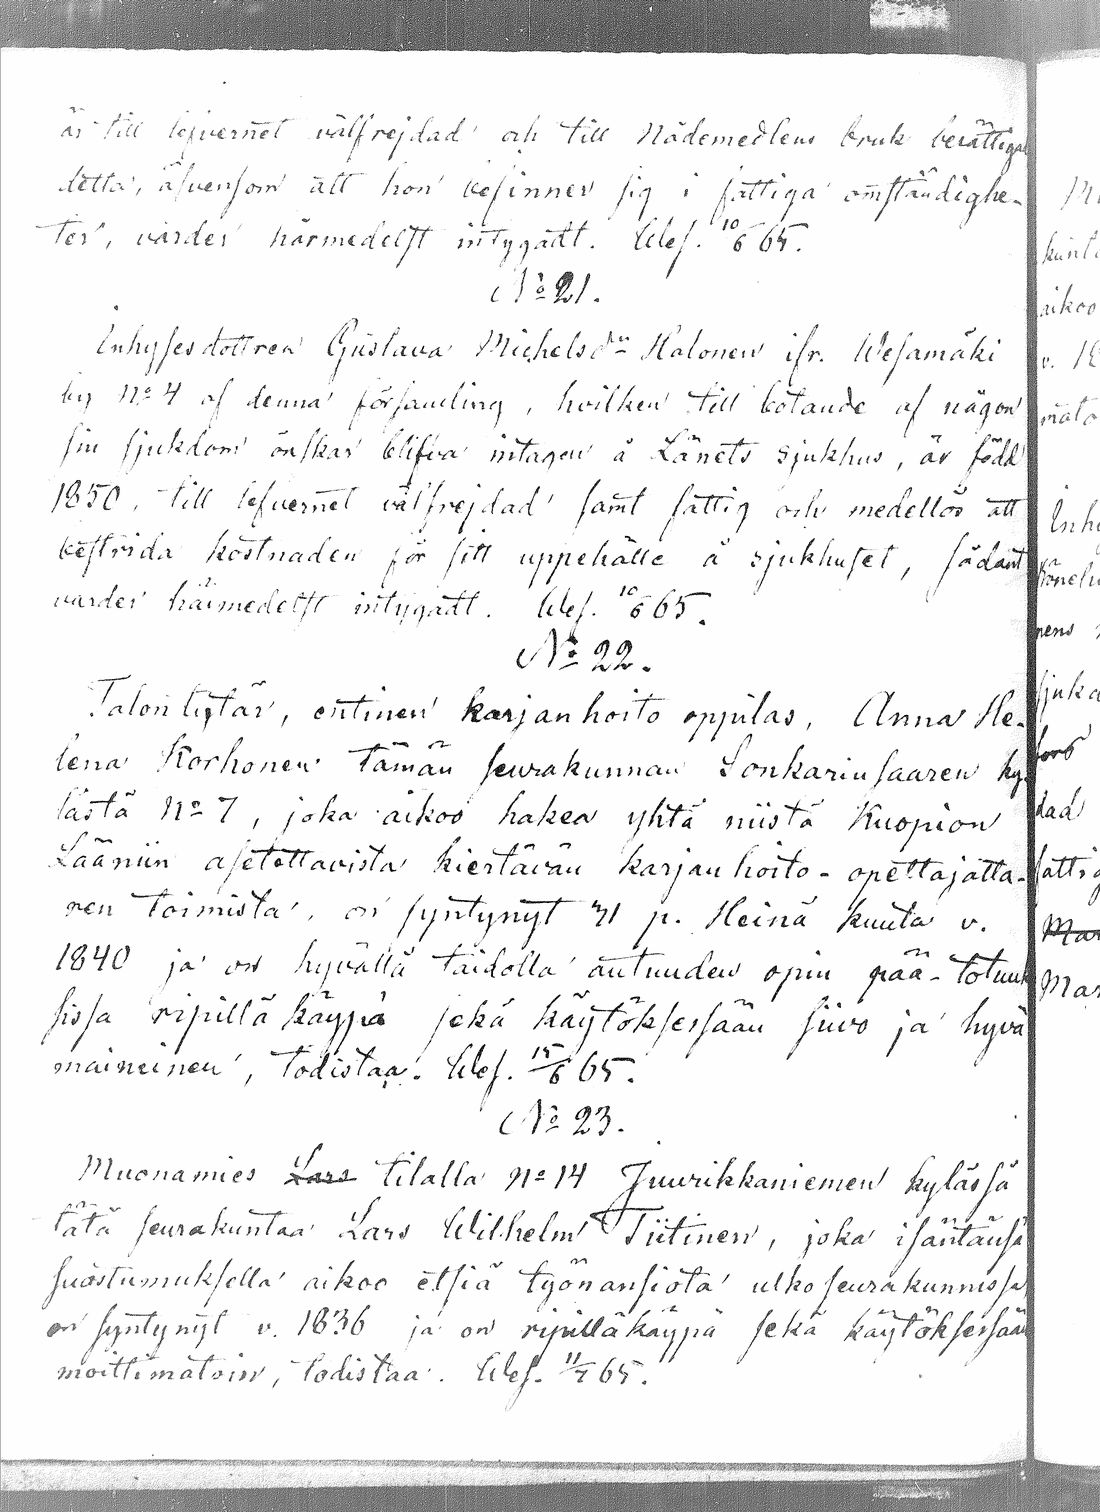 är till lefvernet välfrejdad och till Nådemedlens bruk berättigad
detta, äfvensom att hon befinner sig i fattiga omständighe-
ter, varder härmedelst intygadt. Wes. 10/6 65.
No 21.
Inhysesdottren Gustava Michelsdr Halonen ifr. Wesamäki
by No 4 af denna församling, hvilken till botande af någon
sin sjukdom önskar blifva intagen å Länets Sjukhus, är född
1850, till lefvernet välfrejdad samt fattig och medellös att
bestrida kostnaden för sitt uppehälle å sjukhuset, sådant
varder härmedelst intygadt. Wes. 10/6 65.
No 22.
Talon tytär, entinen karjanhoito oppilas, Anna He-
lena Korhonen tämän seurakunnan Sonkarinsaaren ky-
lästä No 7, joka aikoo hakea yhtä niistä Kuopion
Lääniin asetettavista kiertävän karjanhoito-opettajatta-
ren toimista, on syntynyt 31 p. Heinä kuuta v.
1840 ja on hyvällä taidolla autuuden opin pää-totuuk
sissa ripillä käypä sekä käytöksessään siivo ja hyvä
maineinen, todistaa. Wes. 15/6 65.
No 23.
Muonamies Lars tilalla No 14 Juurikkaniemen kylässä
tätä seurakuntaa Lars Wilhelm Tiitinen, joka isäntänsä
suostumuksella aikoo etsiä työnansiota ulkoseurakunnissa,
on syntynyt v. 1836 ja on ripilläkäypä sekä käytöksessään
moittimatoin, todistaa. Wes. 11/7 65.
kunta
aikoo
v. 18
mato
Inhy
pens
sjuka
fors
dad
fattig
Mar
Mar